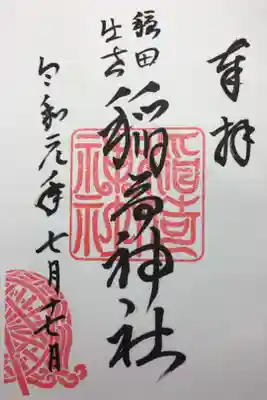 奉拝
稲荷神社
稲荷
神社
令和元年七月十七日